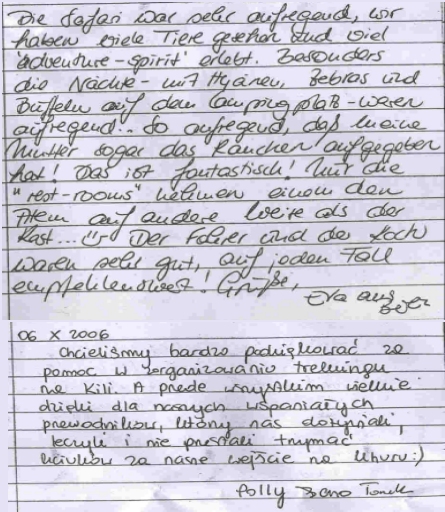 Die Safari war sehr aufregend, wir
haben viele Tiere gesehen und viel
"adventure-spirit" erlebt. Besonders
die Nächte - mit Hyänen, Zebras und
Büffeln auf dem Campingplatz - waren
aufregend... So aufregend, daß meine
Mutter sogar das Rauchen aufgegeben
hat! Das ist fantastisch! Nur die
"rest-rooms" nehmen einem den
Atem auf andere Weise als der
Rest... Der Fahrer und der Koch
waren sehr gut, auf jeden Fall
empfehlenswert! Grüße,
Eva aus
06 X 2006
Chcieliśmy bardzo podziękować za
pomoc w zorganizowaniu trekkingu
na Kili. A przede wszystkim wielkie
dzięki dla naszych wspaniałych
przewodników, którzy nas dotrzymali,
leczyli i nie przestali trzymać
kciuków za nasze wejście na Uhuru:)
Tomek